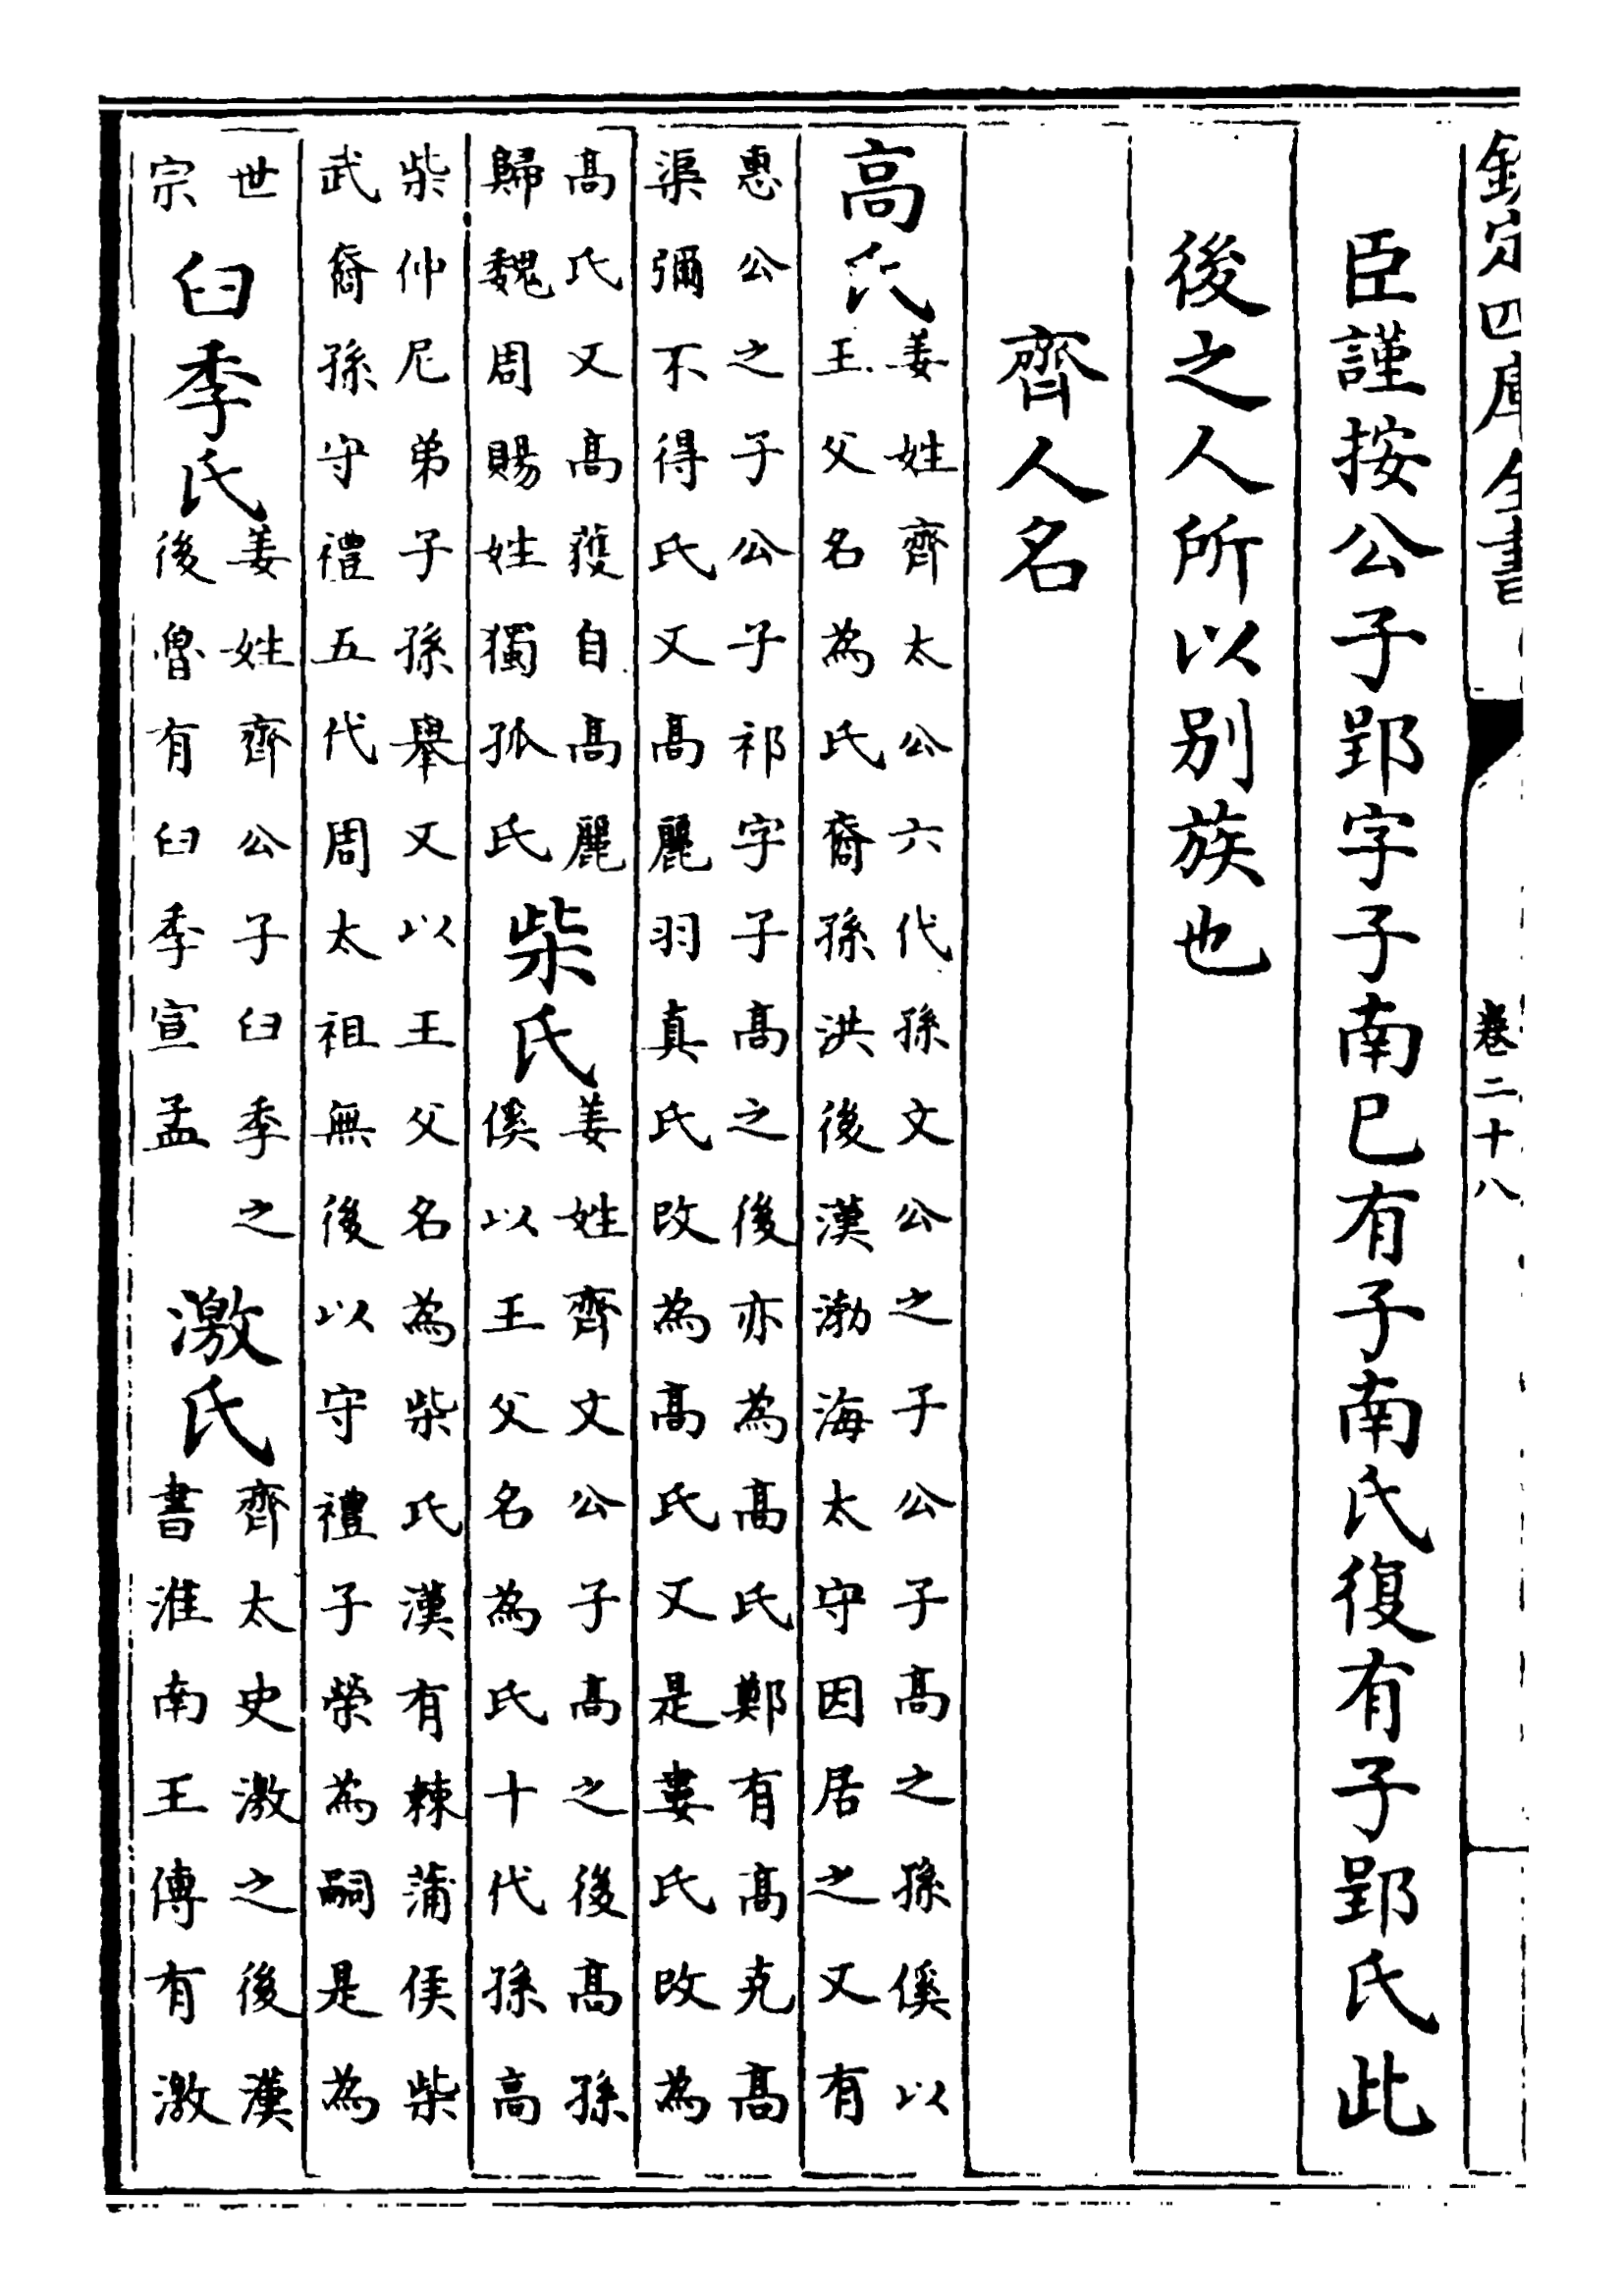 欽定四庫全書
卷二十八
臣謹按公子郢字子南已有子南氏復有子郢氏此
後之人所以别族也
齊人名
高氏
姜姓齊太公六代孫文公之子公子高之孫傒以
王父名為氏裔孫洪後漢渤海太守因居之又有
惠公之子公子祁字子高之後亦為高氏鄭有高克高
渠彌不得氏又高麗羽真氏改為高氏又是婁氏改為
高氏又高獲自高麗
歸魏周賜姓獨孤氏
柴氏
姜姓齊文公子高之後高孫
傒以王父名為氏十代孫高
柴仲尼弟子孫舉又以王父名為柴氏漢有棘蒲侯柴
武裔孫守禮五代周太祖無後以守禮子榮為嗣是為
世
宗
臼季氏
姜姓齊公子臼季之
後魯有臼季宣孟
激氏
齊太史激之後漢
書淮南王傳有激